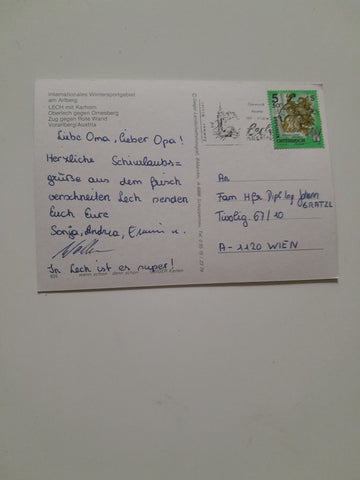 Internationales Wintersportgebiet
am Arlberg
LECH mit Karhorn
Oberlech gegen Omesberg
Zug gegen Rote Wand
Vorarlberg/Austria
Liebe Oma, lieber Opa!
Herzliche Schiurlaubs=
grüße aus dem frisch
verschneiten Lech senden
Euch Eure
Sonja, Andrea, Emmi u.
In Lech ist es super!
5
5
ÖSTERREICH
An
Fam Hfr Dipl Ing Johann
GRATZL
Tivolig. 67/10
A-1120 WIEN